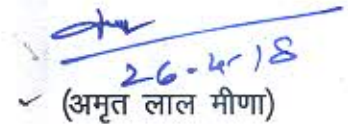 26.4.18
(अमृत लाल मीणा)